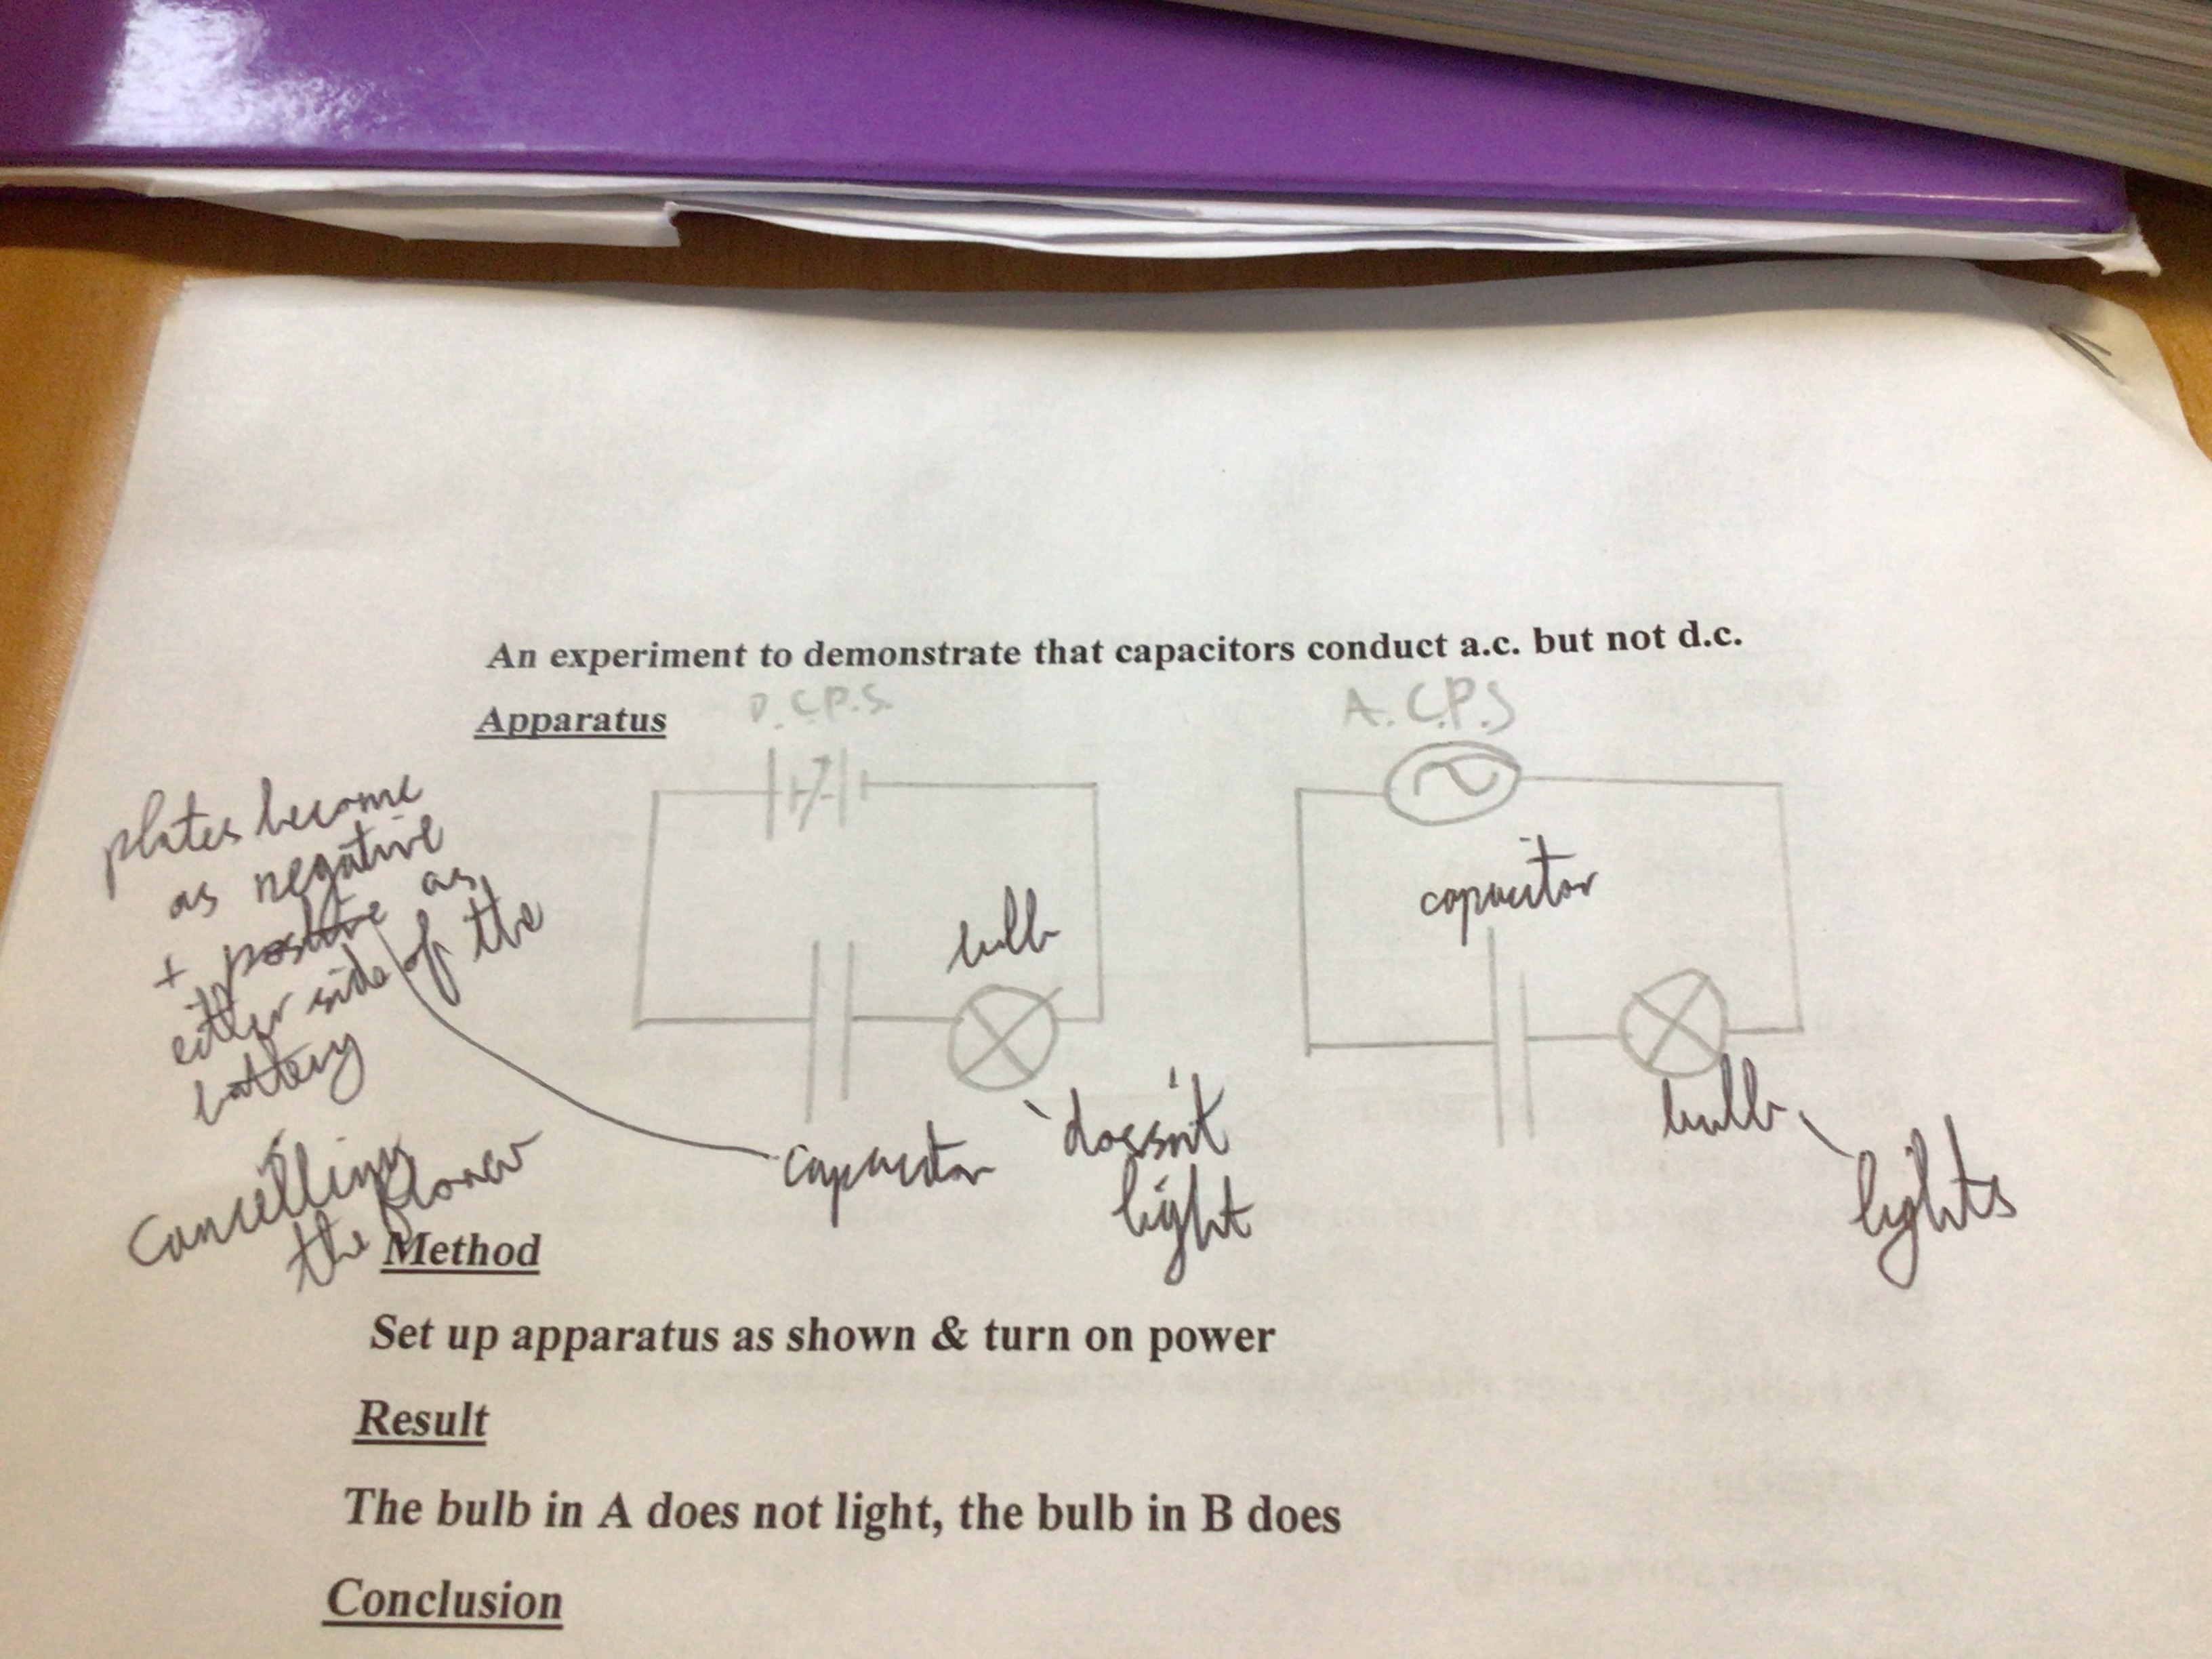 An experiment to demonstrate that capacitors conduct a.c. but not d.c.
Apparatus
D.C.P.S.
A.C.P.S
plates become
as negative
+ positive as
either side of the
battery
cancelling
the power
bulb
capacitor
doesn't
light
capacitor
bulb
lights
Method
Set up apparatus as shown & turn on power
Result
The bulb in A does not light, the bulb in B does
Conclusion